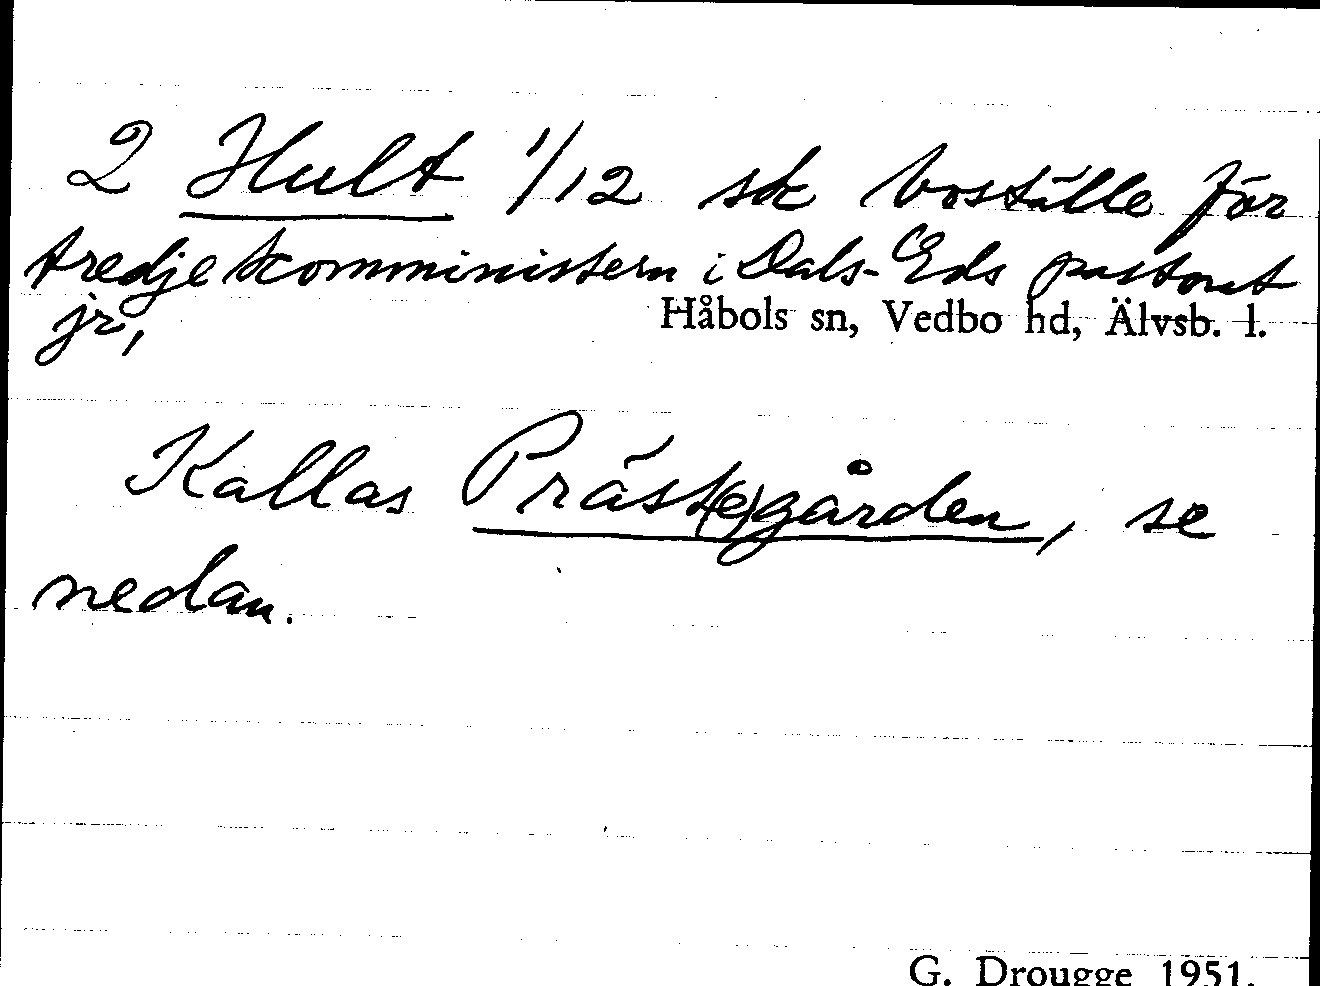 2 Hult 1/12 sk boställe för
tredje komministern i Dals-Eds pastorat
jr,
Håbols sn, Vedbo hd, Älvsb. l.
Kallas Präst(e)gården, se
nedan.
G. Drougge 1951.